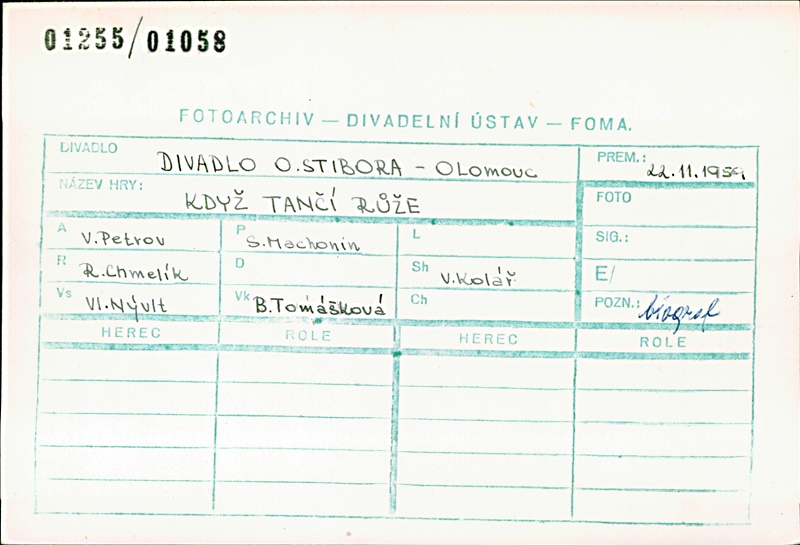 01255/01058
FOTOARCHIV — DIVADELNÍ ÚSTAV — FOMA.
DIVADLO DIVADLO O.STIBORA - OLOMOUC PREM.: 22.11.1959
NÁZEV HRY: KDYŽ TANČÍ RŮŽE FOTO
A V.Petrov P S.Machonin L SIG.:
R R.Chmelík D Sh V.Kolář E/
Vs Vl.Nývlt Vk B.Tomášková Ch POZN.: biograf
HEREC ROLE HEREC ROLE